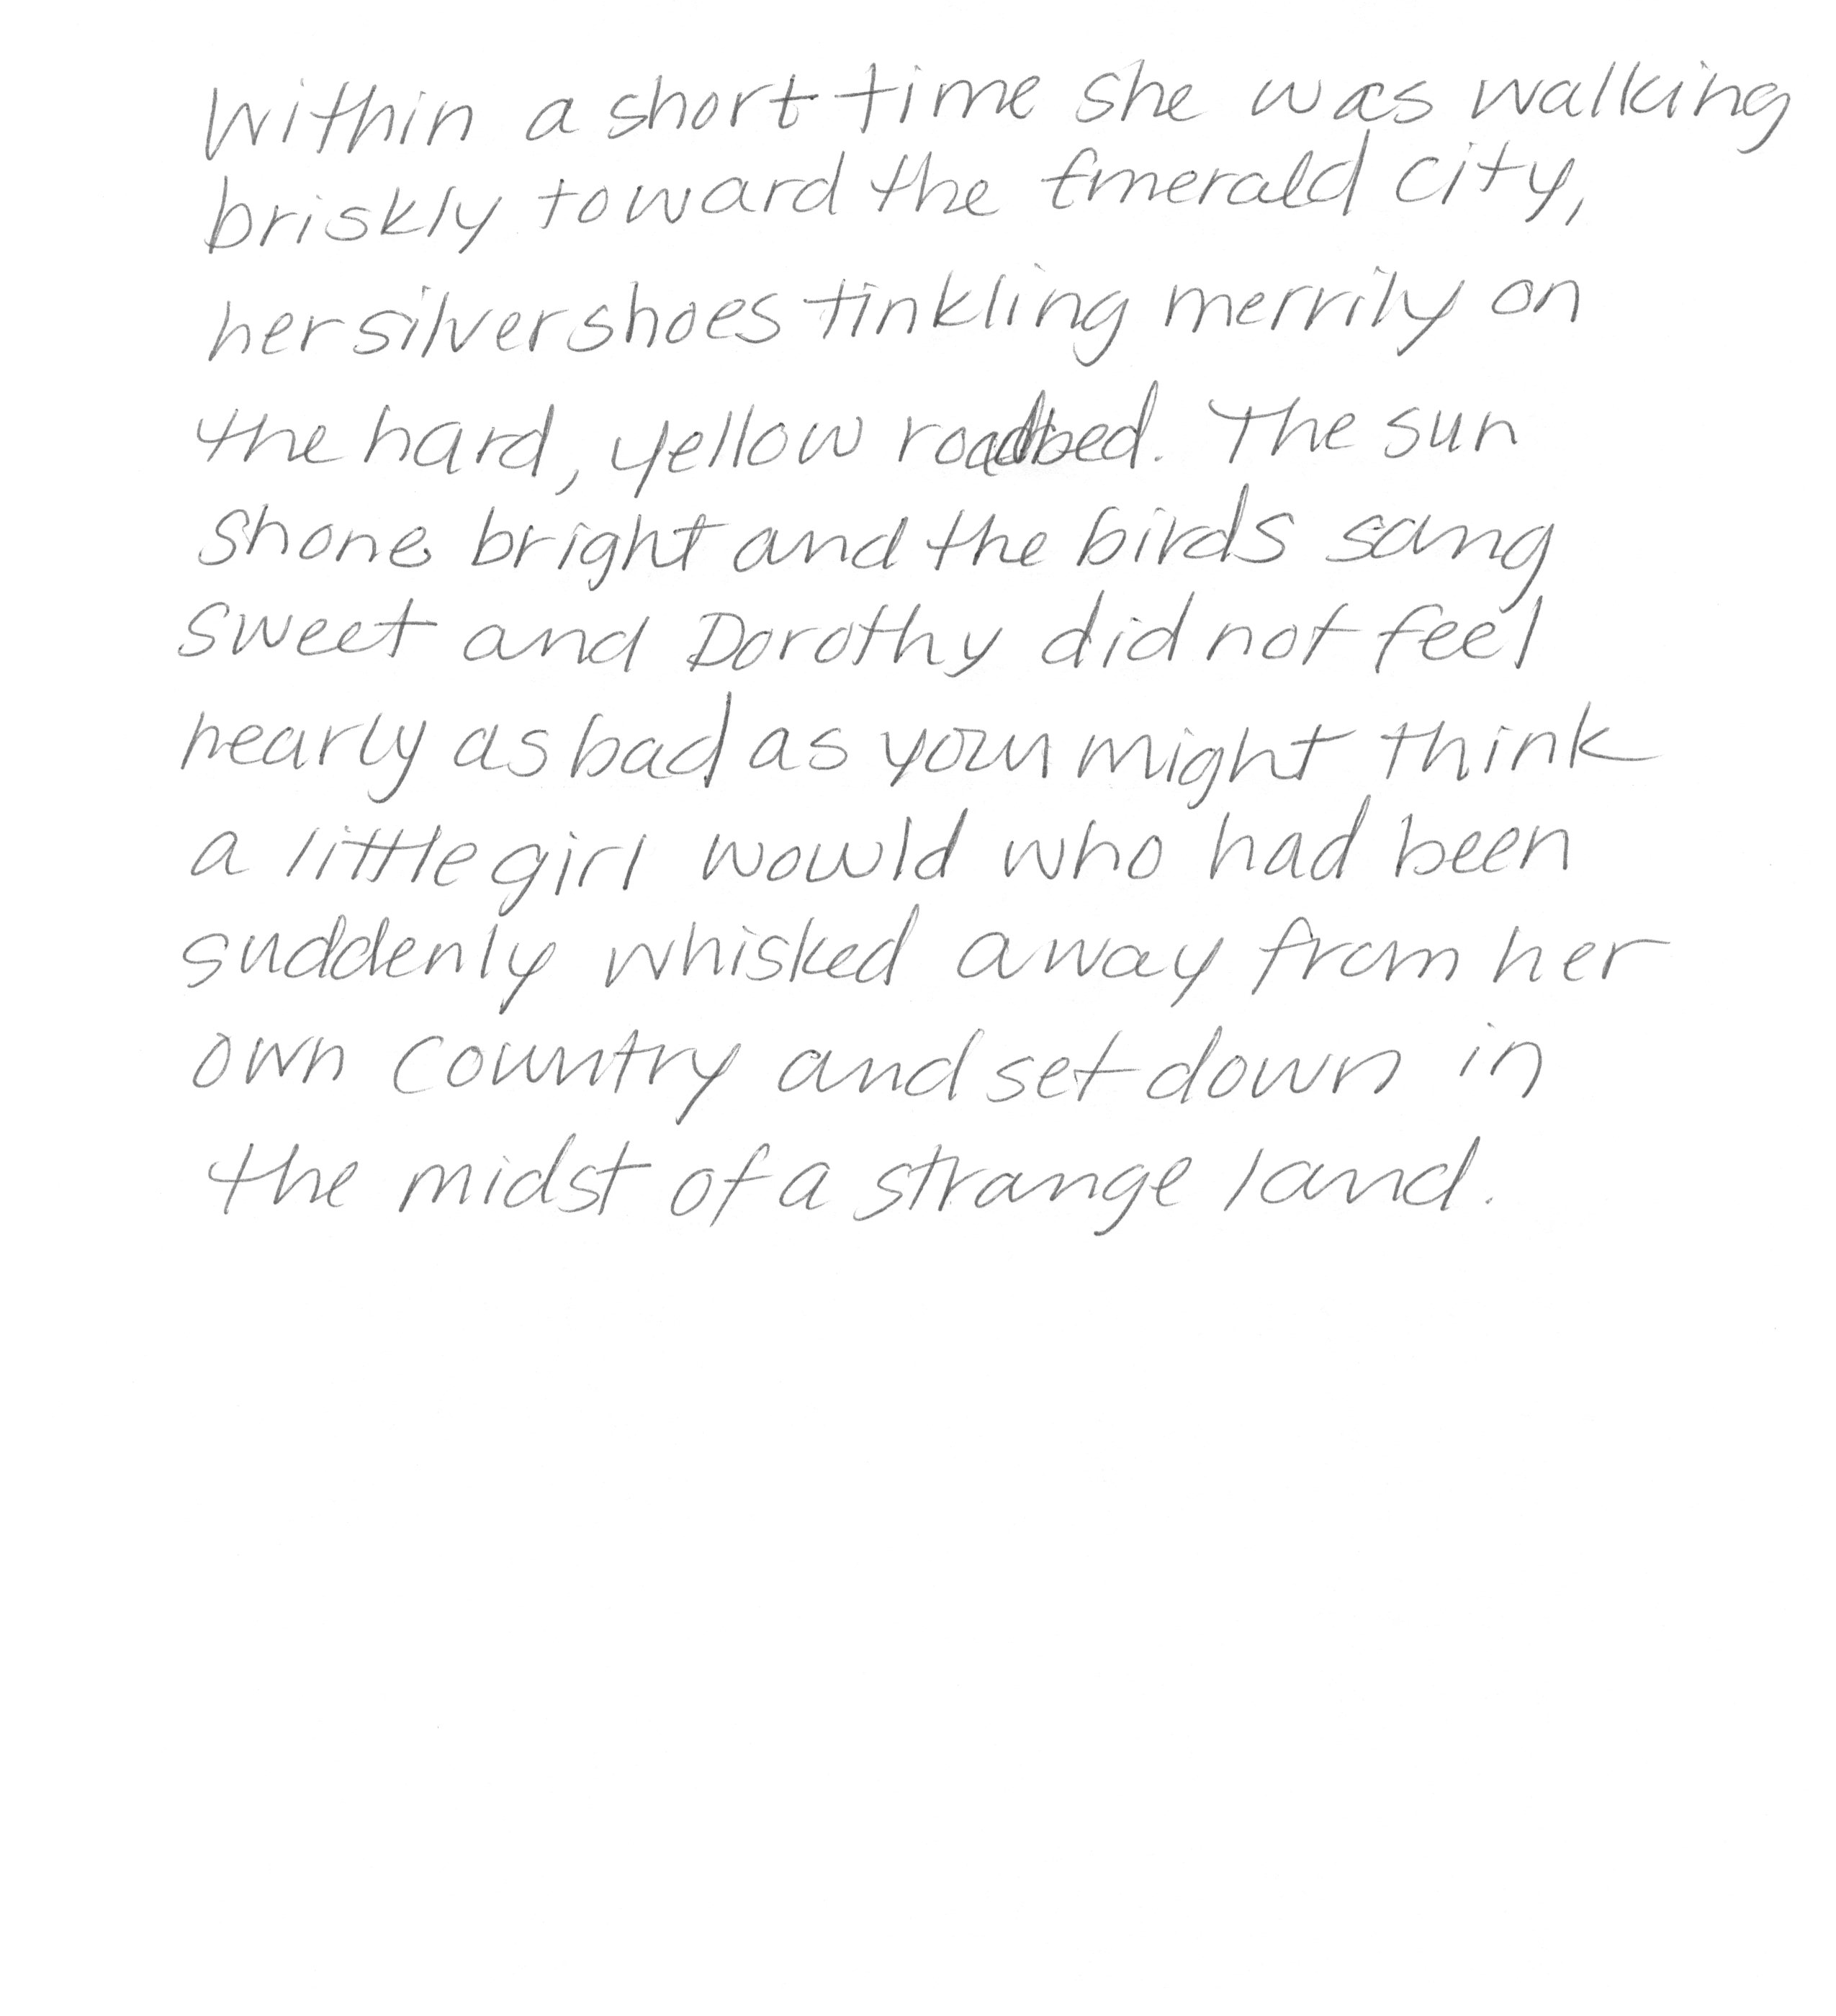 Within a short time she was walking
briskly toward the Emerald City,
her silver shoes tinkling merrily on
the hard, yellow roadbed. The sun
shone bright and the birds sang
sweet and Dorothy did not feel
nearly as bad as you might think
a little girl would who had been
suddenly whisked away from her
own country and set down in
the midst of a strange land.